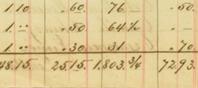 1.10 .60. 76 .50.
1. " .50. 64½
1. " .30 31 .70.
48.15. 25.15. 1.803.¾ 72.93.